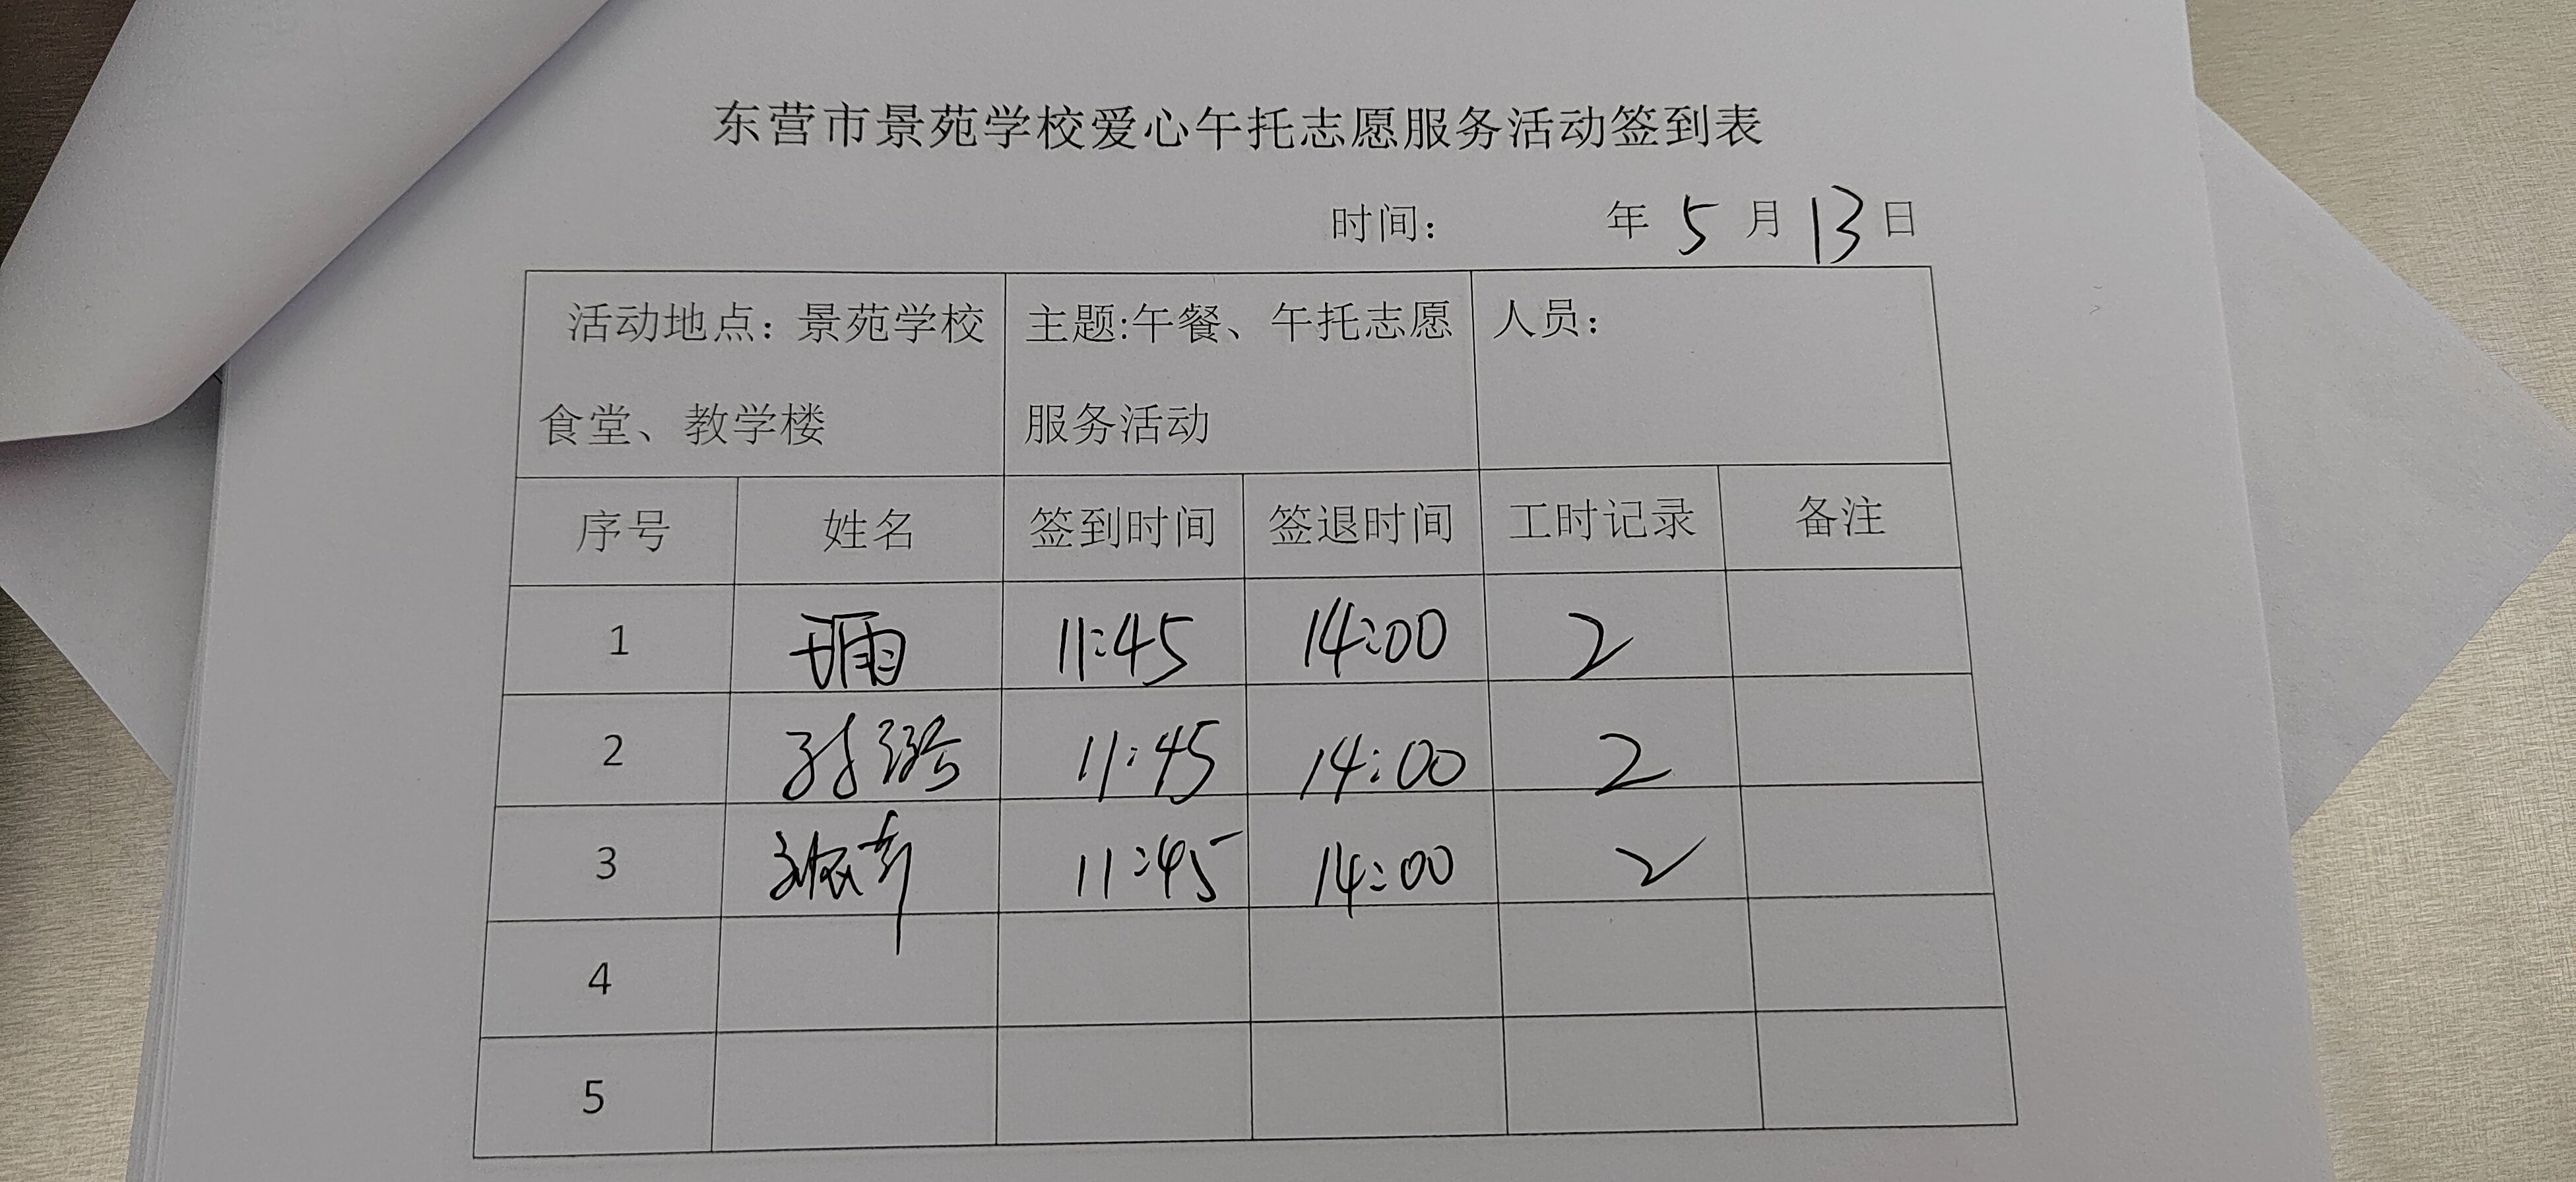 东营市景苑学校爱心午托志愿服务活动签到表
时间： 年 5 月 13 日
活动地点：景苑学校
食堂、教学楼
主题:午餐、午托志愿
服务活动
人员：
序号 姓名 签到时间 签退时间 工时记录 备注
1 11:45 14:00 2
2 11:45 14:00 2
3 11:45 14:00 2
4
5